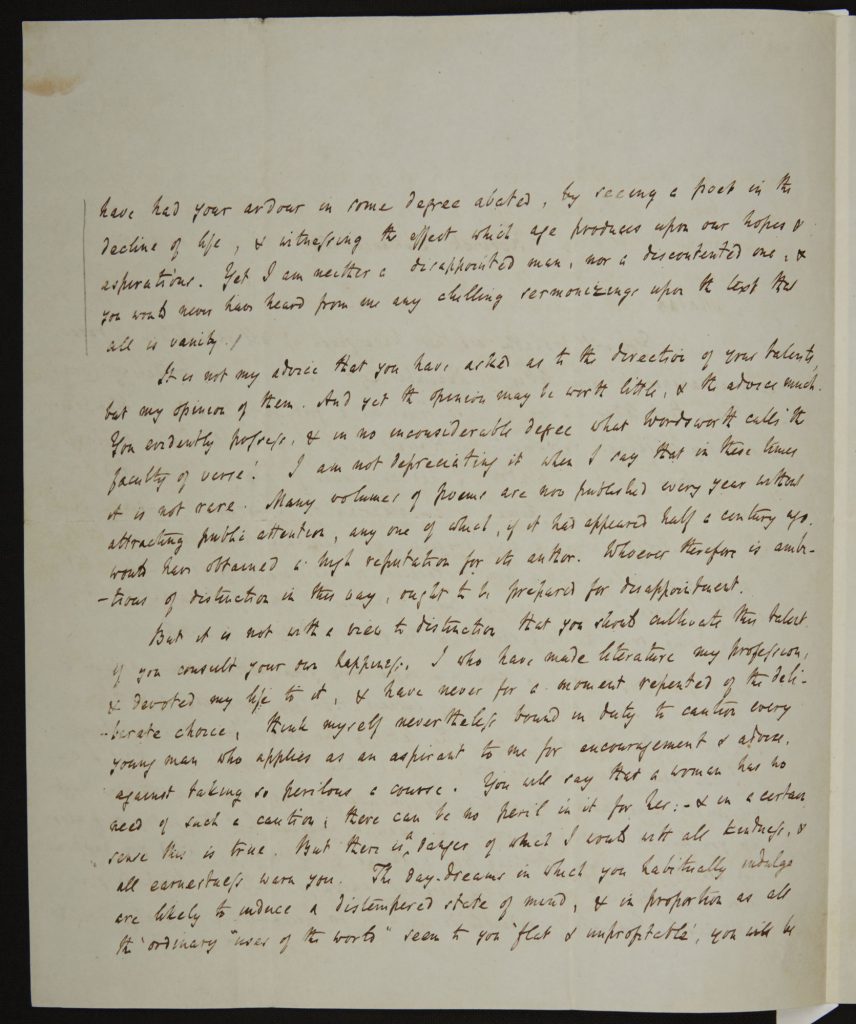 have had your ardour in some degree abated, by seeing a poet in the
decline of life, & witnessing the effect which age produces upon our hopes &
aspirations. Yet I am neither a disappointed man, nor a discontented one, &
you would never have heard from me any chilling sermonizings upon the text that
all is vanity. /
It is not my advice that you have asked as to the direction of your talents,
but my opinion of them. And yet the opinion may be worth little, & the advice much.
You evidently possess, & in no inconsiderable degree what Wordsworth calls 'the
faculty of verse'. I am not depreciating it when I say that in these times
it is not rare. Many volumes of poems are now published every year without
attracting public attention, any one of which, if it had appeared half a century ago,
would have obtained a high reputation for its author. Whoever therefore is ambi-
-tious of distinction in this way, ought to be prepared for disappointment.
But it is not with a view to distinction that you should cultivate this talent
if you consult your own happiness. I who have made literature my profession,
& devoted my life to it, & have never for a moment repented of the deli-
-berate choice, think myself nevertheless bound in duty to caution every
young man who applies as an aspirant to me for encouragement & advice,
against taking so perilous a course. You will say that a woman has no
need of such a caution, there can be no peril in it for her: - & in a certain
sense this is true. But there is a danger of which I would with all kindness, &
all earnestness warn you. The day-dreams in which you habitually indulge
are likely to induce a distempered state of mind, & in proportion as all
the 'ordinary "uses of the world" seem to you 'flat & unprofitable', you will be